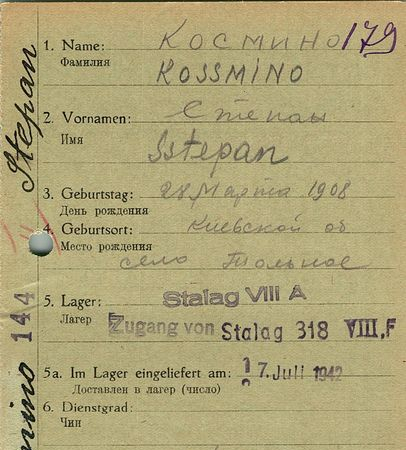 1. Name: Космино 179
Фамилия
KOSSMINO
2. Vornamen: Степан
Имя
Sstepan
3. Geburtstag: 28 Марта 1908
День рождения
4. Geburtsort: Киевской об
Место рождения
село Тольное
5. Lager: Stalag VIII A
Лагер
Zugang von Stalag 318 VIII.F
5a. Im Lager eingeliefert am: 17. Juli 1942
Доставлен в лагер (число)
6. Dienstgrad:
Чин
Stepan
mino 144